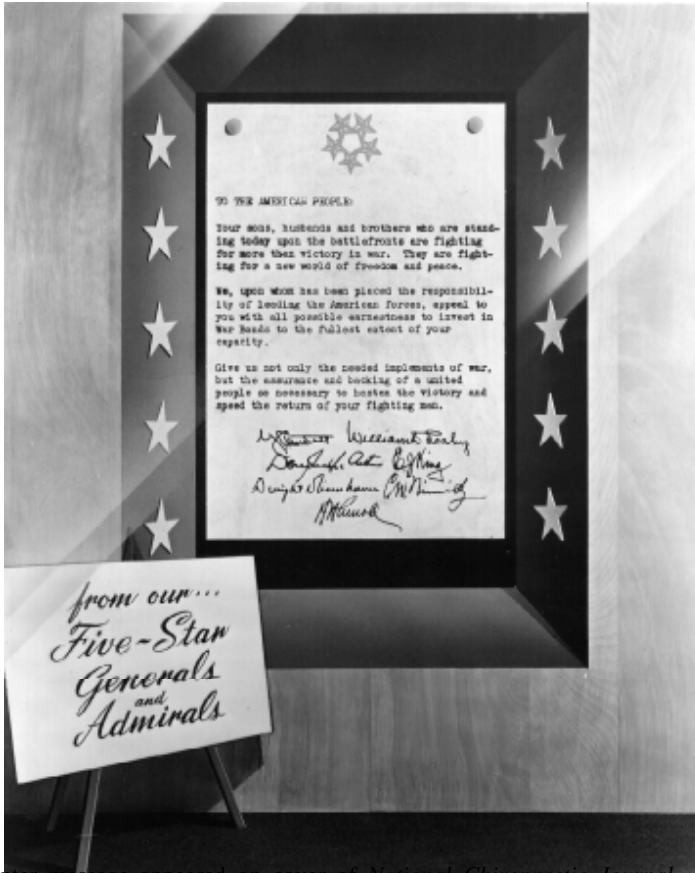 TO THE AMERICAN PEOPLE:
Your sons, husbands and brothers who are stand-
ing today upon the battlefronts are fighting
for more than victory in war. They are fight-
ing for a new world of freedom and peace.
We, upon whom has been placed the responsibil-
ity of leading the American forces, appeal to
you with all possible earnestness to invest in
War Bonds to the fullest extent of your
capacity.
Give us not only the needed implements of war,
but the assurance and backing of a united
people so necessary to hasten the victory and
speed the return of your fighting men.
William D Leahy
E J King
Dwight Eisenhower C W Nimitz
H H Arnold
from our...
Five-Star
Generals
and
Admirals
of National Chiropractic Journal